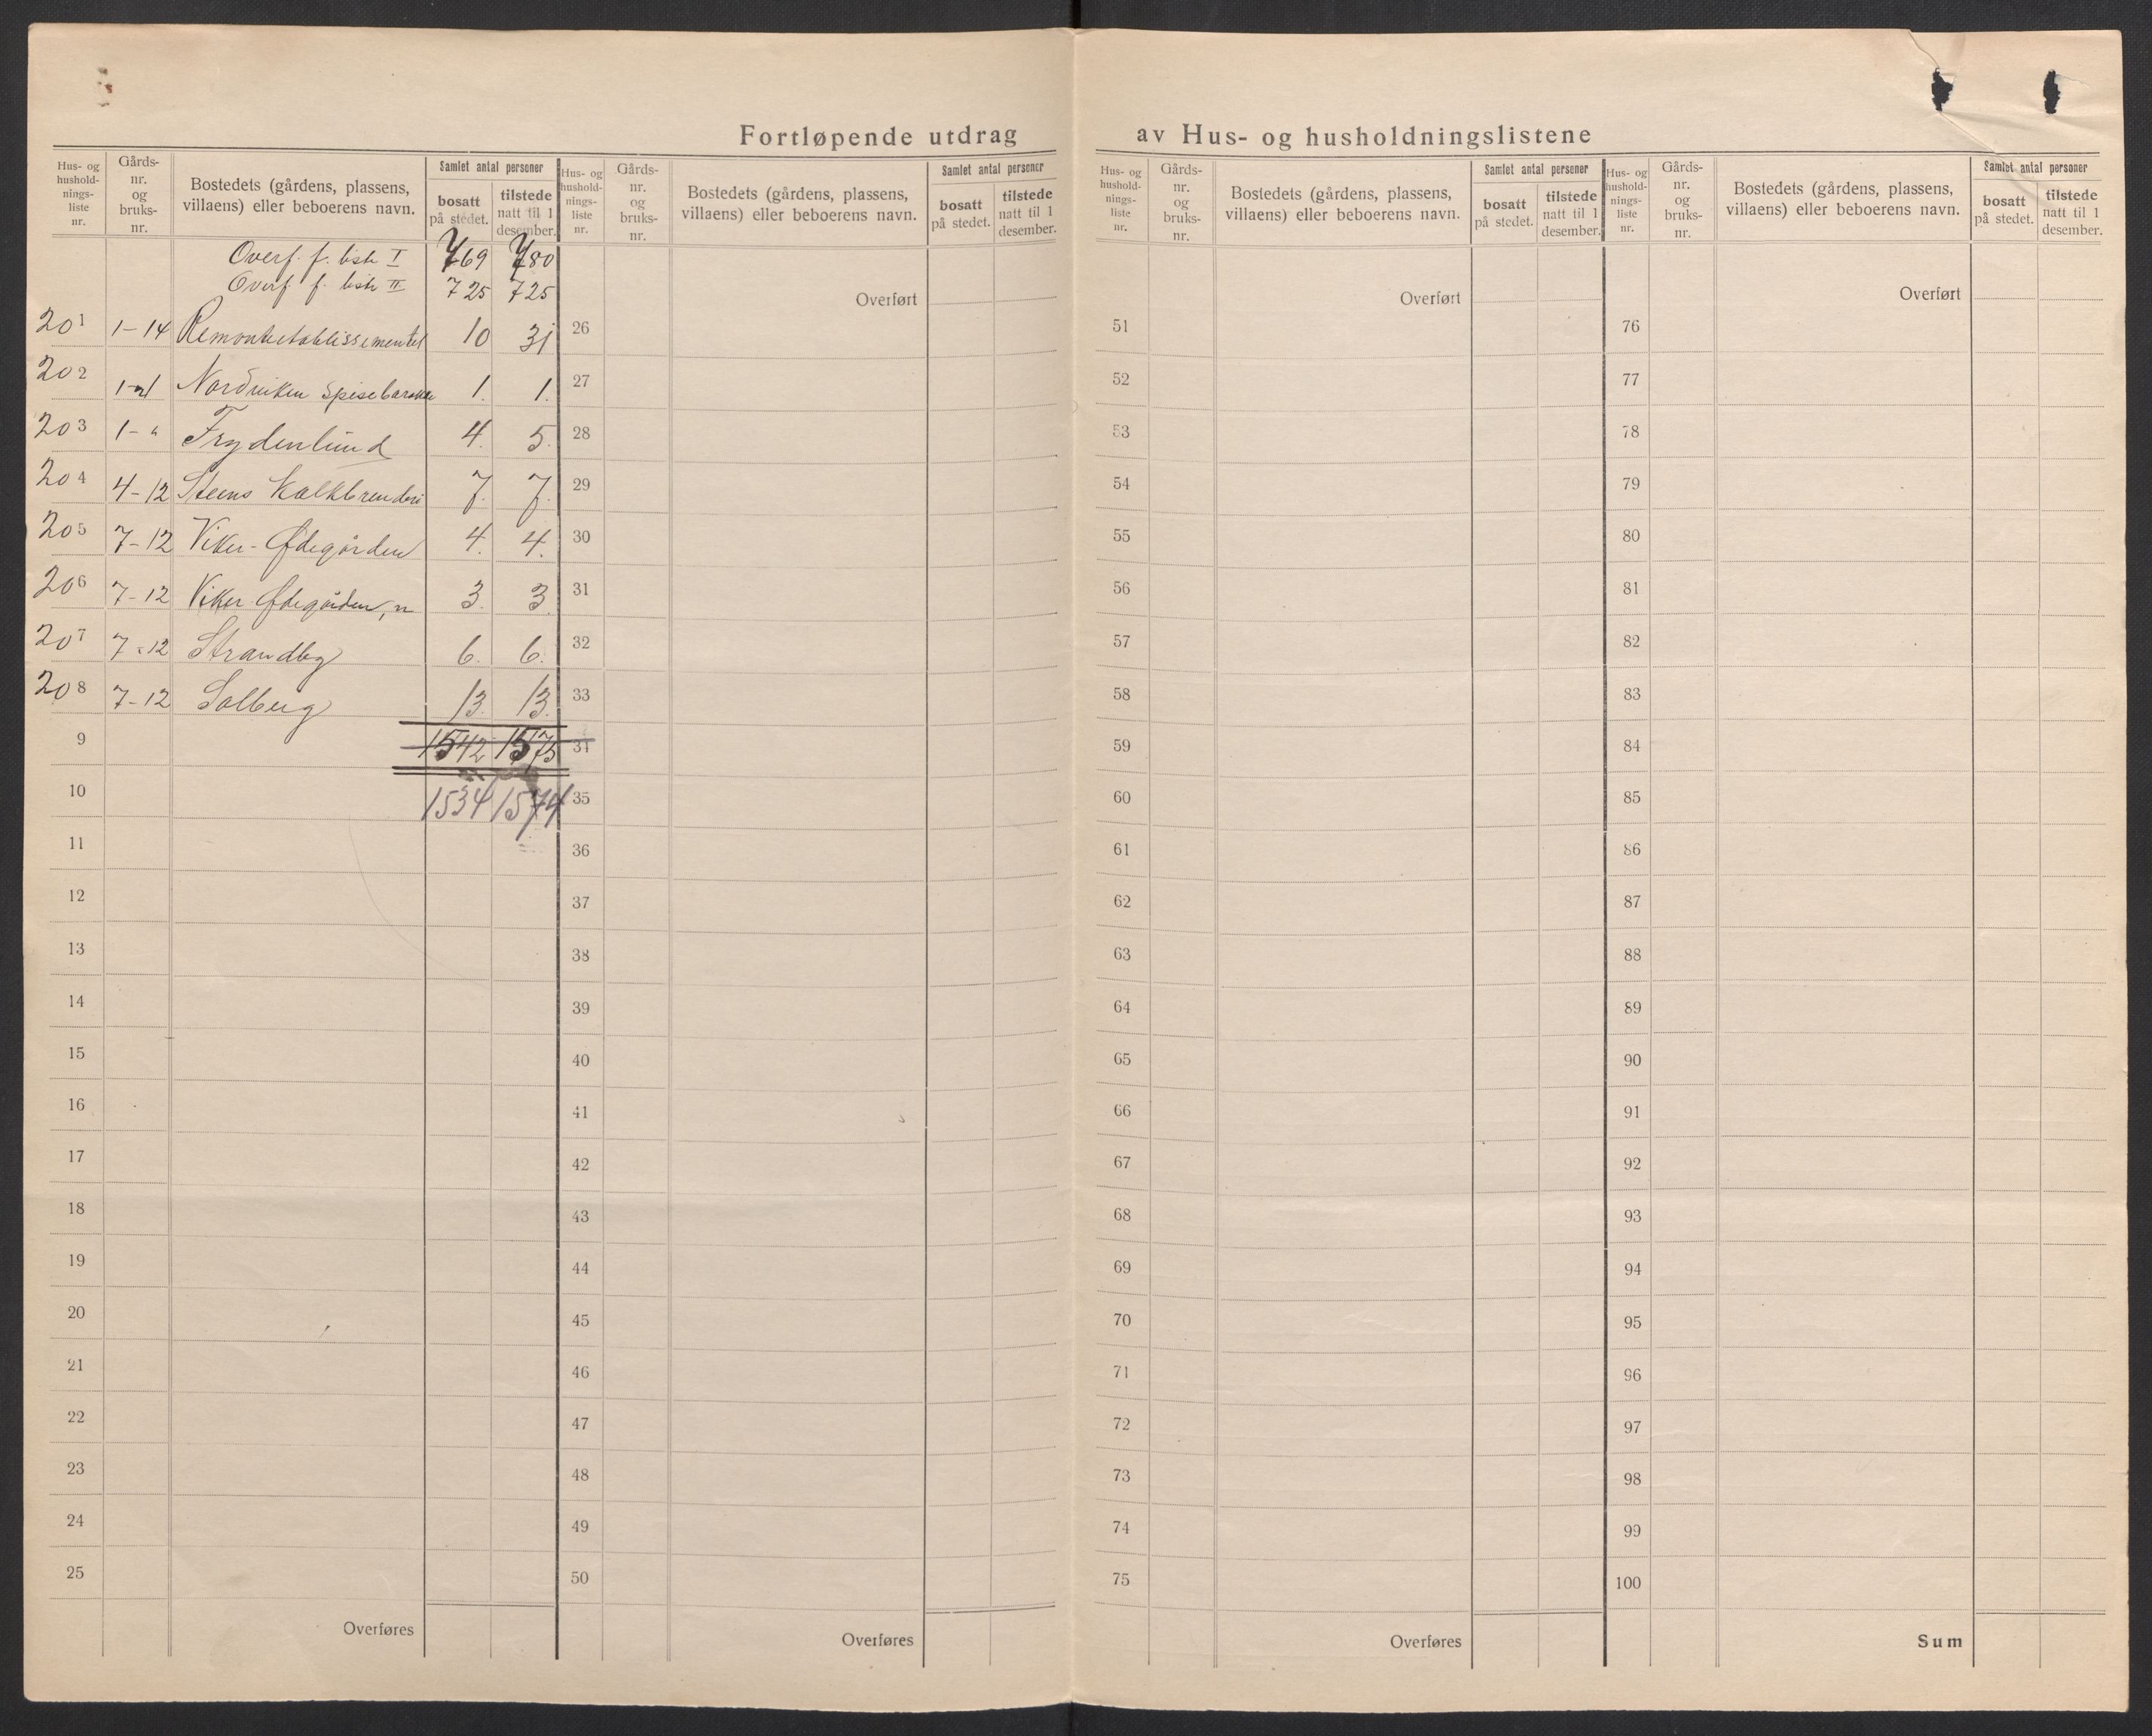 Fortløpende utdrag av Hus- og husholdningslistene
Hus- og hushold-nings-liste nr. Gårds-nr. og bruks-nr. Bostedets (gårdens, plassens, villaens) eller beboerens navn. Samlet antal personer bosatt på stedet. tilstede natt til 1 desember.
Overf. f. liste I 769 780
Overf f. liste II 725 725
201 1-14 Remonteetablissementet 10 31
202 1- Nordviken Spisebarakke 1. 1.
203 1-" Frydenlund 4. 5.
204 4-12 Steens Kalkbrenderi 7. 7.
205 7-12 Viker-Ødegården 4. 4.
206 7-12 Viker Ødegården, n 3. 3.
207 7-12 Strandby 6. 6.
208 7-12 Solberg 13. 13.
9 1542 1575
10 1534 1574
11
12
13
14
15
16
17
18
19
20
21
22
23
24
25
Overføres
Hus- og hushold-nings-liste nr. Gårds-nr. og bruks-nr. Bostedets (gårdens, plassens, villaens) eller beboerens navn. Samlet antal personer bosatt på stedet. tilstede natt til 1 desember.
Overført
26
27
28
29
30
31
32
33
34
35
36
37
38
39
40
41
42
43
44
45
46
47
48
49
50
Overføres
Hus- og hushold-nings-liste nr. Gårds-nr. og bruks-nr. Bostedets (gårdens, plassens, villaens) eller beboerens navn. Samlet antal personer bosatt på stedet. tilstede natt til 1 desember.
Overført
51
52
53
54
55
56
57
58
59
60
61
62
63
64
65
66
67
68
69
70
71
72
73
74
75
Overføres
Hus- og hushold-nings-liste nr. Gårds-nr. og bruks-nr. Bostedets (gårdens, plassens, villaens) eller beboerens navn. Samlet antal personer bosatt på stedet. tilstede natt til 1 desember.
Overført
76
77
78
79
80
81
82
83
84
85
86
87
88
89
90
91
92
93
94
95
96
97
98
99
100
Sum